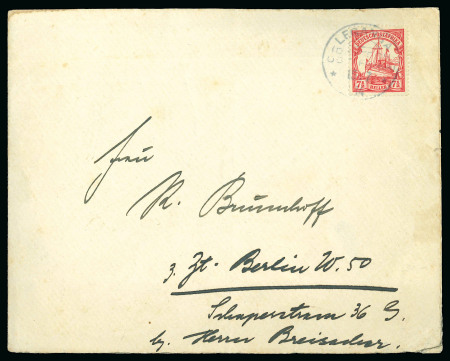 DEUTSCH-OSTAFRIKA
7½ HELLER 7½
Frau
R. Brunnhoff
z. Zt. Berlin W. 50
Schaperstram 36 G.
by Herrn Breisacher.